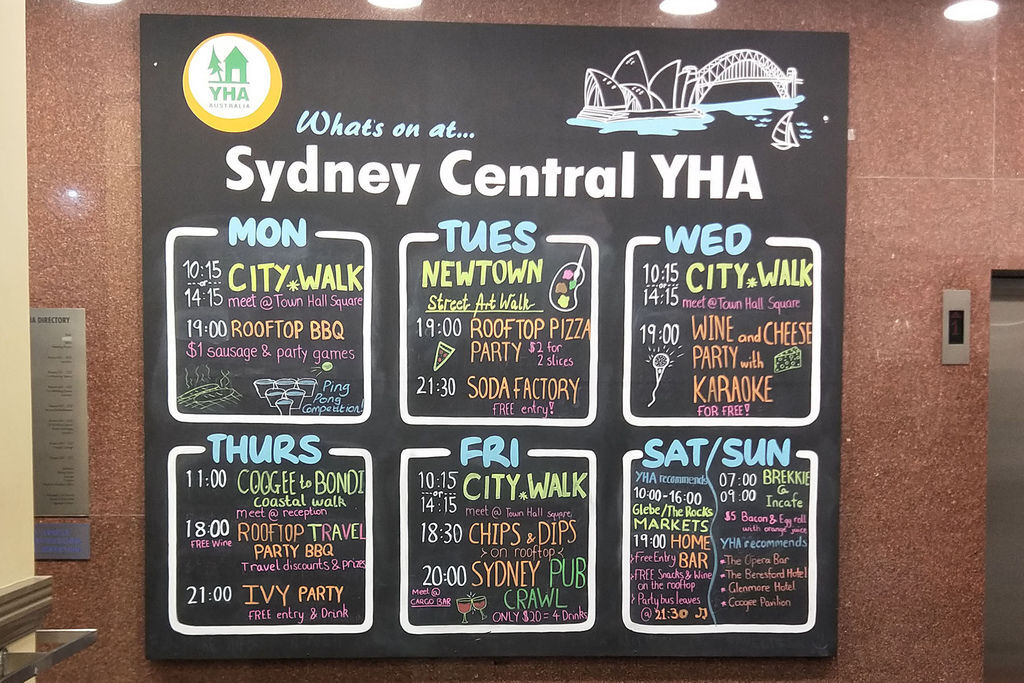 YHA
AUSTRALIA
What's on at...
Sydney Central YHA
MON
10:15
or
14:15
CITY*WALK
meet @ Town Hall Square
19:00 ROOFTOP BBQ
$1 sausage & party games
Ping
Pong
Competition!
TUES
NEWTOWN
Street Art Walk
19:00 ROOFTOP PIZZA
PARTY $2 for
2 slices
21:30 SODA FACTORY
FREE entry!
WED
10:15
or
14:15
CITY*WALK
meet @ Town Hall Square
19:00 WINE and CHEESE
PARTY with
KARAOKE
FOR FREE!
THURS
11:00 COOGEE to BONDI
coastal walk
meet @ reception
18:00 ROOFTOP TRAVEL
FREE Wine PARTY BBQ
Travel discounts & prizes
21:00 IVY PARTY
FREE entry & Drink
FRI
10:15
or
14:15
CITY*WALK
meet @ Town Hall Square
18:30 CHIPS & DIPS
>on rooftop<
20:00 SYDNEY PUB
CRAWL
Meet @
CARGO BAR
ONLY $20 = 4 Drinks
SAT/SUN
YHA recommends
10:00-16:00
Glebe/The Rocks
MARKETS
19:00 HOME
FreeEntry BAR
FREE Snacks & Wine
on the rooftop
Party bus leaves
@ 21:30
07:00 BREKKIE
09:00 @
Incafe
$5 Bacon & Egg roll
with orange juice
YHA recommends
*The Opera Bar
*The Beresford Hotel
*Glenmore Hotel
*Coogee Pavilion
DIRECTORY